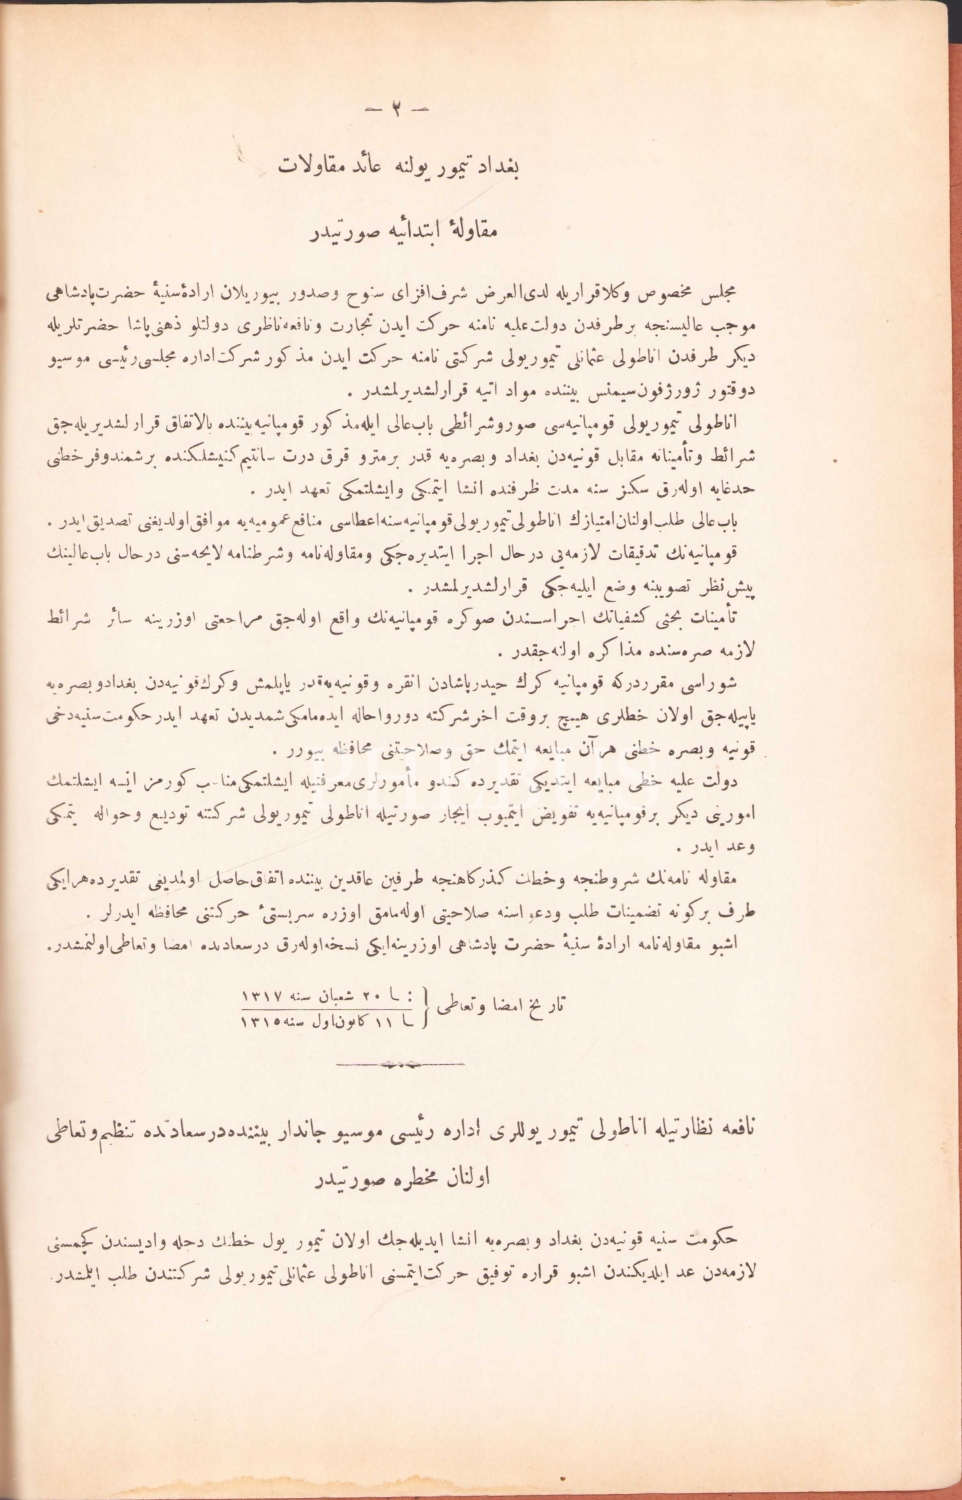 — ٢ —
بغداد تیمور یولنه عائد مقاولات
مقاولهٔ ابتدائیه صورتیدر
مجلس مخصوص وکلا قراریله لدی‌العرض شرف‌افزای سنوح وصدور بیوریلان ارادهٔ سنیهٔ حضرت پادشاهی
موجب عالیسنجه بر طرفدن دولت علیه نامنه حرکت ایدن تجارت ونافعه ناظری دولتلو ذهنی پاشا حضرتلریله
دیکر طرفدن اناطولی عثمانلی تیموریولی شرکتی نامنه حرکت ایدن مذکور شرکت اداره مجلسی رئیسی موسیو
دوقتور ژورژفون سیمنس بیننده مواد اتیه قرارلشدیرلمشدر .
اناطولی تیموریولی قومپانیه‌سی صور وشرائطی باب عالی ایله مذکور قومپانیه بیننده بالاتفاق قرارلشدیریله‌جق
شرائط وتأمیناته مقابل قونیه‌دن بغداد وبصره‌یه قدر بر مترو قرق درت سانتیم کنیشلکنده بر شمندوفر خطنی
حد غایه اوله‌رق سکز سنه مدت ظرفنده انشا ایتمکی وایشلتمکی تعهد ایدر .
باب عالی طلب اولنان امتیازك اناطولی تیموریولی قومپانیه‌سنه اعطاسی منافع عمومیه‌یه موافق اولدیغنی تصدیق ایدر .
قومپانیه‌نك تدقیقات لازمه‌یی درحال اجرا ایتدیره‌جکی ومقاوله‌نامه وشرطنامه لایحه‌سنی درحال باب عالینك
پیش نظر تصویبنه وضع ایلیه‌جکی قرارلشدیرلمشدر .
تأمینات بحثی کشفیاتك اجراسندن صوکره قومپانیه‌نك واقع اوله‌جق مراجعتی اوزرینه سائر شرائط
لازمه صره‌سنده مذاکره اولنه‌جقدر .
شوراسی مقرردرکه قومپانیه کرك حیدرپاشادن انقره وقونیه‌یه قدر یاپلمش وکرك قونیه‌دن بغداد وبصره‌یه
یاپیله‌جق اولان خطلری هیچ بر وقت اخر شرکته دور واحاله ایده‌مامکی شمدیدن تعهد ایدر حکومت سنیه دخی
قونیه وبصره خطنی هر آن مبایعه ایتمك حق وصلاحیتنی محافظه بیورر .
دولت علیه خطی مبایعه ایتدیکی تقدیرده کندو مأمورلری معرفتیله ایشلتمکی مناسب کورمز ایسه ایشلتمك
امورینی دیکر بر قومپانیه‌یه تفویض ایتمیوب ایجار صورتیله اناطولی تیموریولی شرکتنه تودیع وحواله ایتمکی
وعد ایدر .
مقاوله نامه‌نك شروطنجه وخطك کذرکاهنجه طرفین عاقدین بیننده اتفاق حاصل اولمدیغی تقدیرده هر ایکی
طرف بر کونه تضمینات طلب ودعواسنه صلاحیتی اوله‌مامق اوزره سربستیٔ حرکتنی محافظه ایدرلر .
اشبو مقاوله‌نامه ارادهٔ سنیهٔ حضرت پادشاهی اوزرینه ایکی نسخه اوله‌رق درسعادتده امضا وتعاطی اولنمشدر .
تاریخ امضا وتعاطی { : ٢٠ شعبان سنه ١٣١٧
١١ کانون اول سنه ١٣١٥
نافعه نظارتیله اناطولی تیمور یوللری اداره رئیسی موسیو جاندار بیننده درسعادتده تنظیم وتعاطی
اولنان مخطره صورتیدر
حکومت سنیه قونیه‌دن بغداد وبصره‌یه انشا ایدیله‌جك اولان تیمور یول خطنك دجله وادیسندن کچمسنی
لازمه‌دن عد ایلدیکندن اشبو قراره توفیق حرکت ایتمسنی اناطولی عثمانلی تیموریولی شرکتندن طلب ایلمشدر .